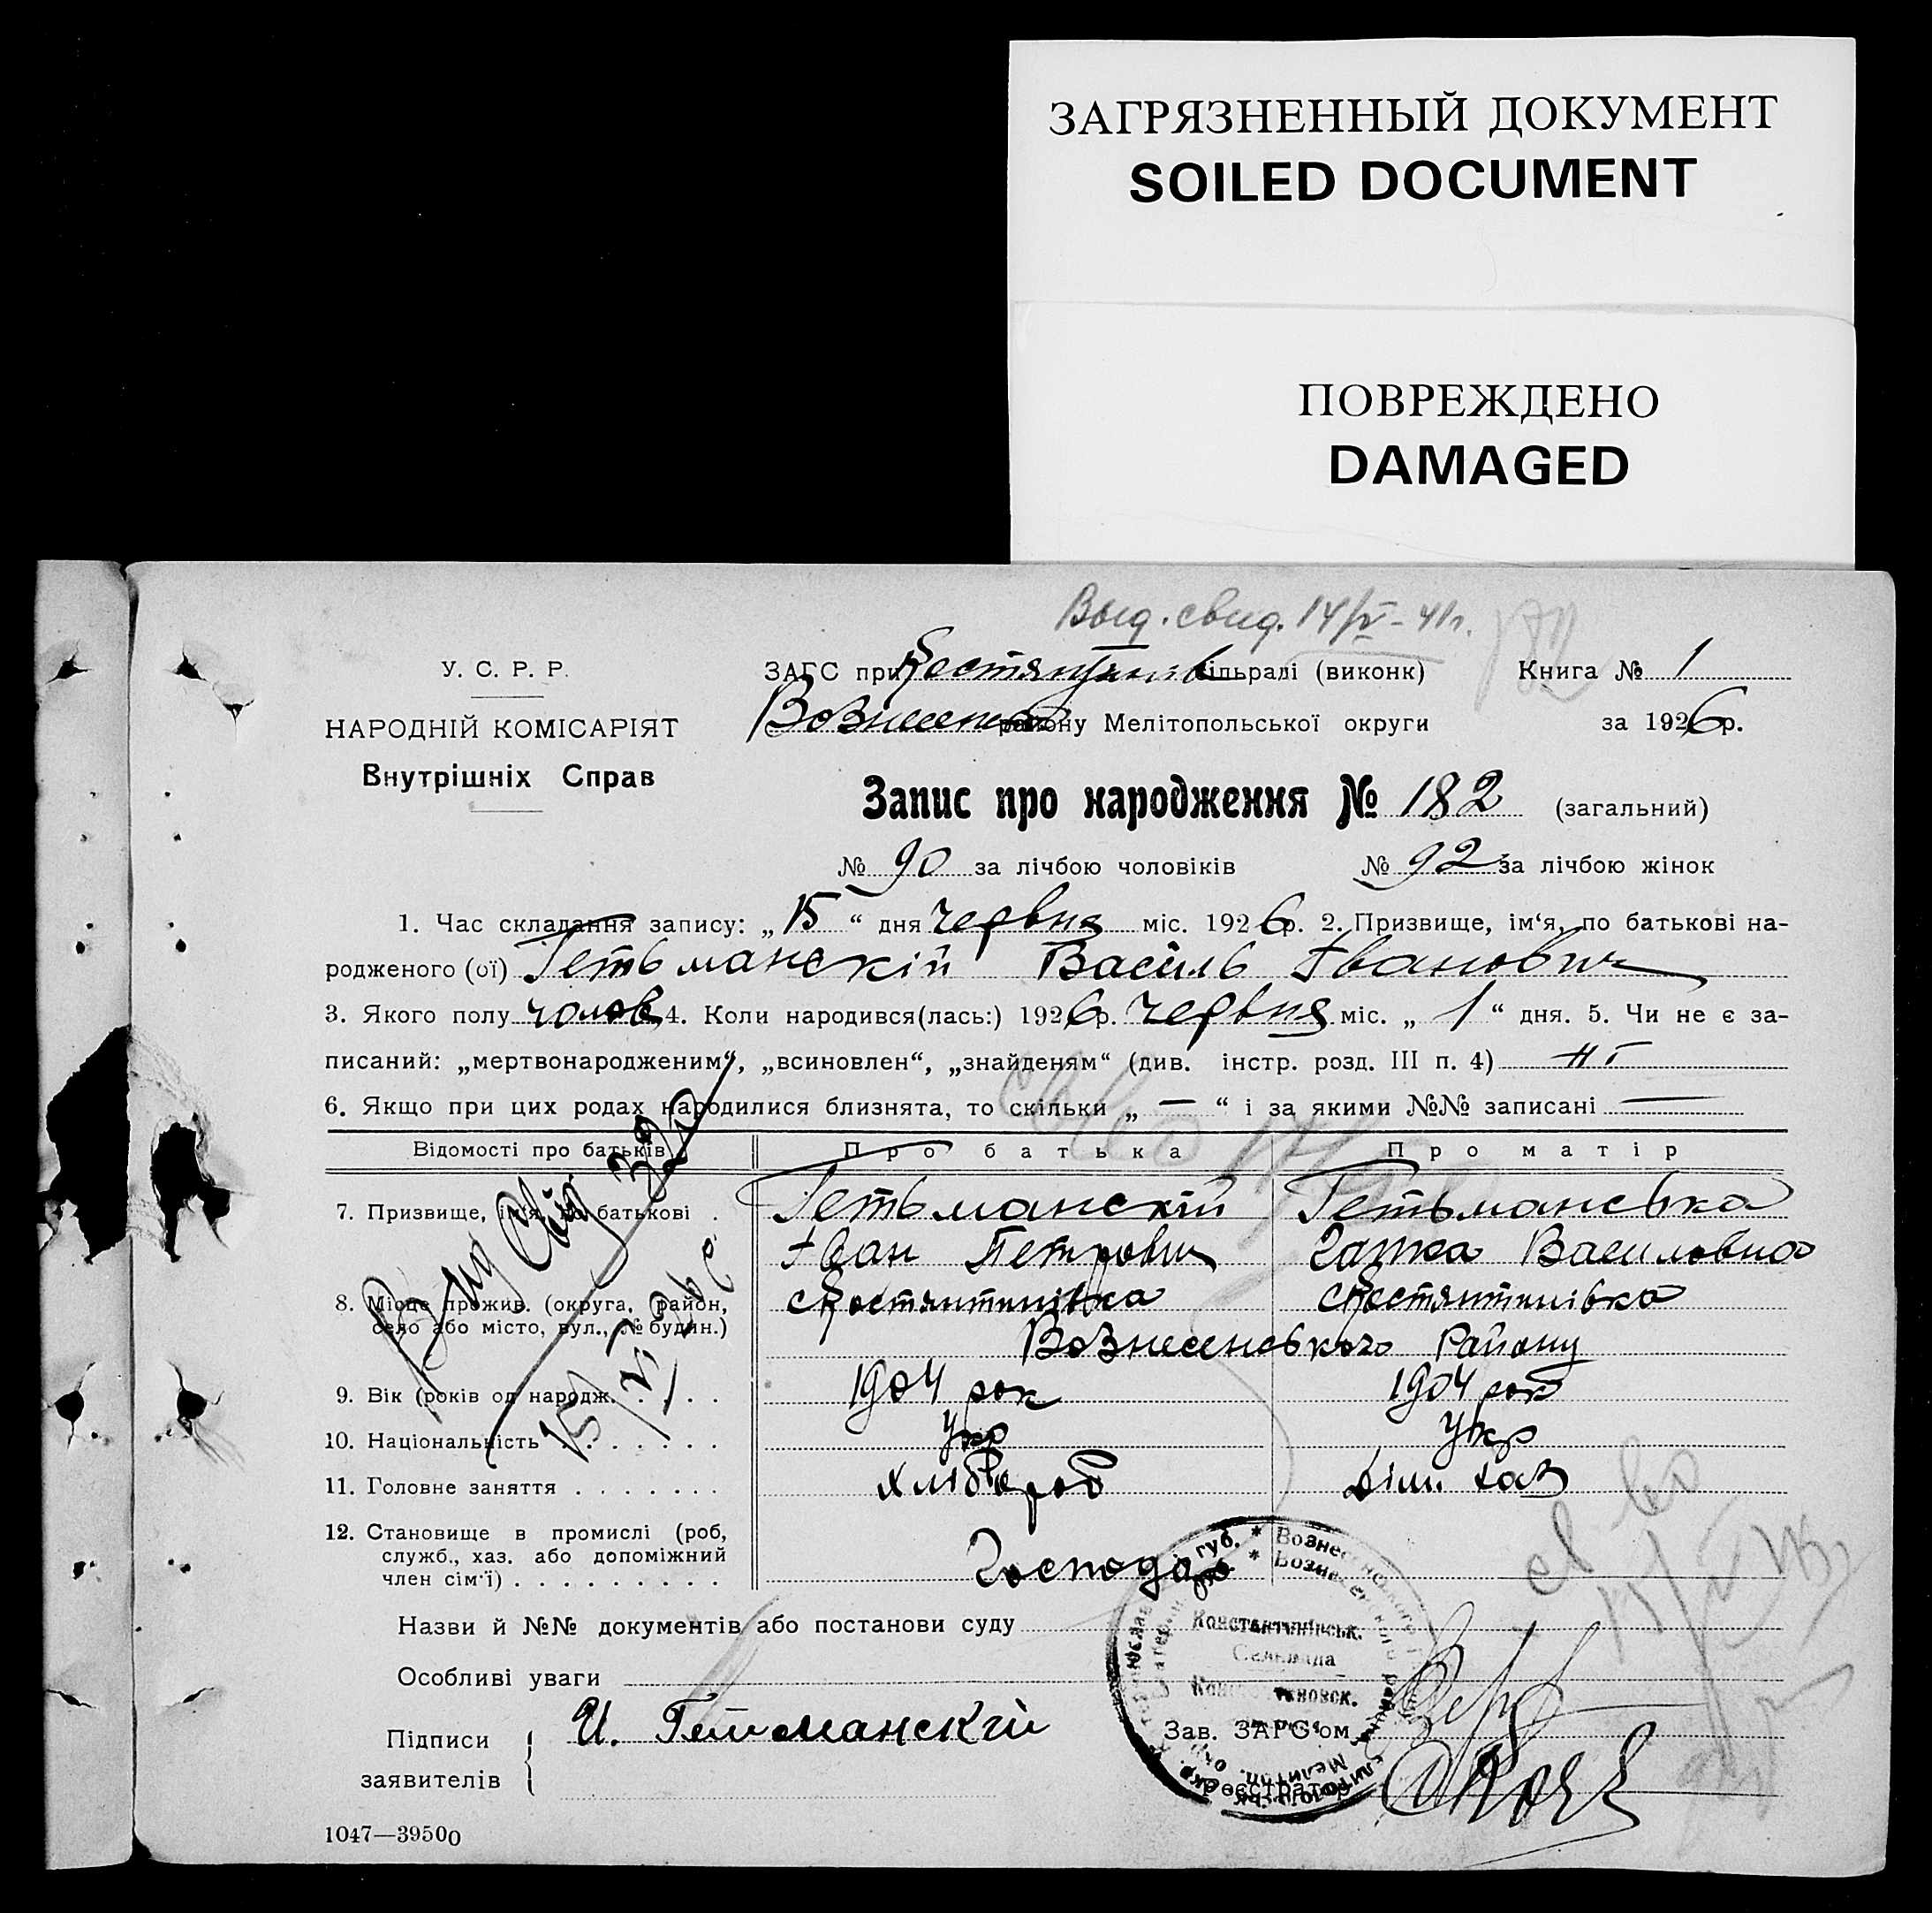 ЗАГРЯЗНЕННЫЙ ДОКУМЕНТ
SOILED DOCUMENT
ПОВРЕЖДЕНО
DAMAGED
Выд. свид. 14/IV-41г.
У. С. Р. Р.
НАРОДНІЙ КОМІСАРІЯТ
Внутрішніх Справ
ЗАГС при Костянтинів сільраді (виконк) Книга № 1
району Мелітопольської округи за 1926 р.
Запис про народження № 182 (загальний)
№ 90 за лічбою чоловіків № 92 за лічбою жінок
1. Час складання запису: „15“ дня червня міс. 1926 р. 2. Призвище, ім‘я, по батькові на-
родженого (ої) Гетьманскій Василь Іванович
3. Якого полу чолов 4. Коли народився(лась:) 1926 р. червня міс. „1“ дня. 5. Чи не є за-
писаний: „мертвонародженим“, „всиновлен“, „знайденям“ (див. інстр. розд. III п. 4) ні
6. Якщо при цих родах народилися близнята, то скільки „—“ і за якими №№ записані —
Відомості про батьків Про батька Про матір
7. Призвище, ім‘я, по батькові . Гетьманскій Гетьманська
Іван Петрович Василовна
8. Місце прожив. (округа, район, с Костянтинівка с Костянтинівка
село або місто, вул., № будин.) Вознесенського Району
9. Вік (років од народж. . . . . 1904 рок 1904 рок
10. Національність . . . . . . . Укр Укр
11. Головне заняття . . . . . . . хлібороб дім. хаз
12. Становище в промислі (роб,
служб., хаз. або допоміжний
член сім‘ї) . . . . . . . . . Господар
Назви й №№ документів або постанови суду
Особливі уваги
Підписи
заявителів
И. Гетманскій
Константинівськ.
Сельрада
Зав. ЗАГС‘ом
Реєстратор
1047—39500